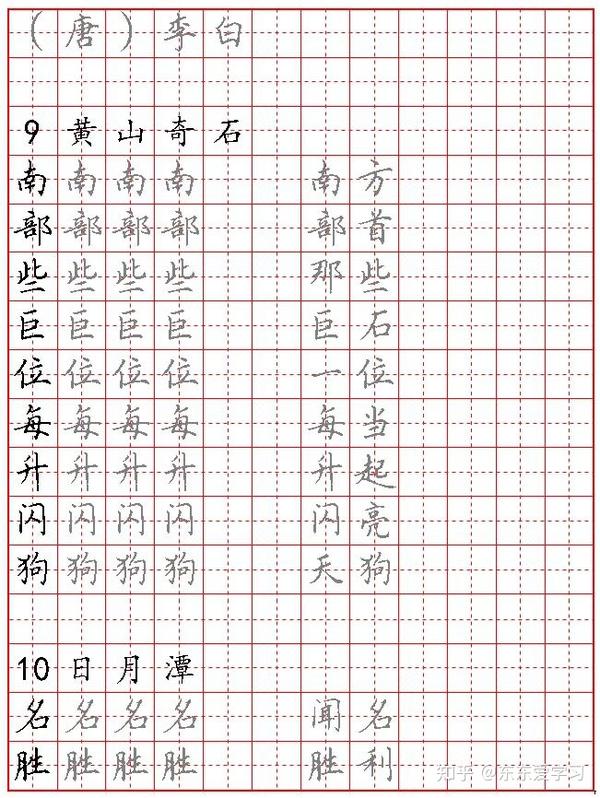 （唐）李白
9 黄山奇石
南南南南 南方
部部部部 部首
些些些些 那些
巨巨巨巨 巨石
位位位位 一位
每每每每 每当
升升升升 升起
闪闪闪闪 闪亮
狗狗狗狗 天狗
10 日月潭
名名名名 闻名
胜胜胜胜 胜利
知乎 @东东爱学习